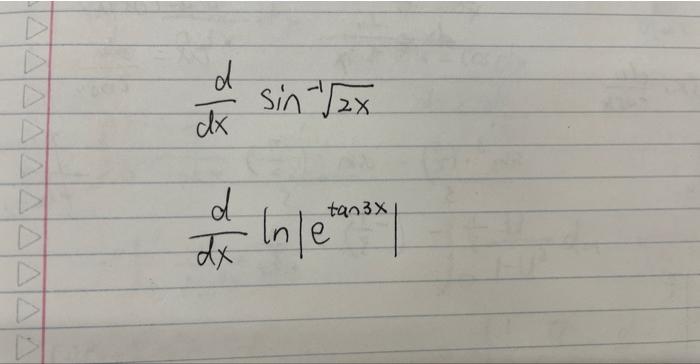 d/dx sin⁻¹√2x
d/dx ln|e^tan3x|